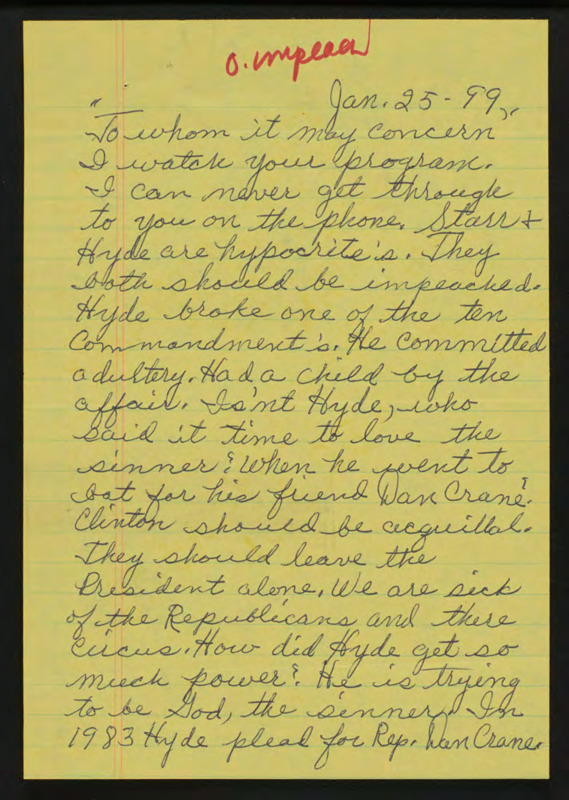 O. impeach
Jan. 25-99,
"To whom it may concern
I watch your program.
I can never get through
to you on the phone. Starr +
Hyde are hypocrite's. They
both should be impeached.
Hyde broke one of the ten
Commandment's. He committed
adultery. Had a child by the
affair. Is'nt Hyde, who
said it time to love the
sinner? When he went to
bat for his friend Dan Crane?
Clinton should be acquillal.
They should leave the
President alone. We are sick
of the Republicans and there
Circus. How did Hyde get so
much power? He is trying
to be God, the sinner. In
1983 Hyde plead for Rep. Dan Crane.